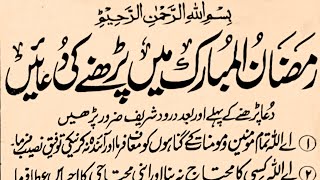 بسم اللہ الرحمٰن الرحیم
رمضان المبارک میں پڑھنے کی دعائیں
دعا پڑھنے کے پہلے اور بعد درود شریف ضرور پڑھیں
① اے اللہ تمام مومنین و مومنات کے گناہوں کو معاف فرما اور آئندہ نہ کرنے کی توفیق نصیب فرما۔
② اے اللہ کسی کا محتاج نہ بنا اور اپنی محتاجی کا احساس عطا فرما